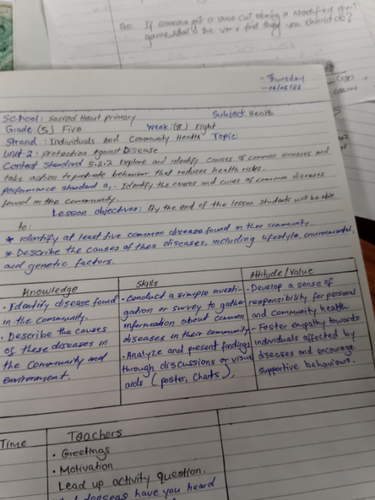 Qn: If someone got a
game, what is the very first thing you should do?
Thursday
School: Sacred Heart primary
Subject: Health
Grade (5) Five
Week (8) Eight
Strand: Individuals And Community Health
Topic:
Unit 2: protection Against Disease
Content Standard 5.2.2 Explore and identify causes of common illnesses and
take action to promote behavior that reduces health risks.
performance standard a, Identify the causes and cures of common diseases
found in the community.
Lesson objectives: By the end of the lesson students will be able
to:
* Identify at least five common diseases found in their community.
* Describe the causes of these diseases, including lifestyle, environmental,
and genetic factors.
Knowledge
• Identify disease found
in the community.
• Describe the causes
of these diseases in
the community and
environment.
Skills
• Conduct a simple investi-
gation or survey to gather
information about common
diseases in their community
• Analyze and present findings
through discussions or visual
aids (poster, Charts).
Attitude/Value
• Develop a sense of
responsibility for personal
and community health
• Foster empathy towards
individuals affected by
diseases and encourage
supportive behaviour.
Time
Teachers
• Greetings
• Motivation
Lead up activity question.
have you heard